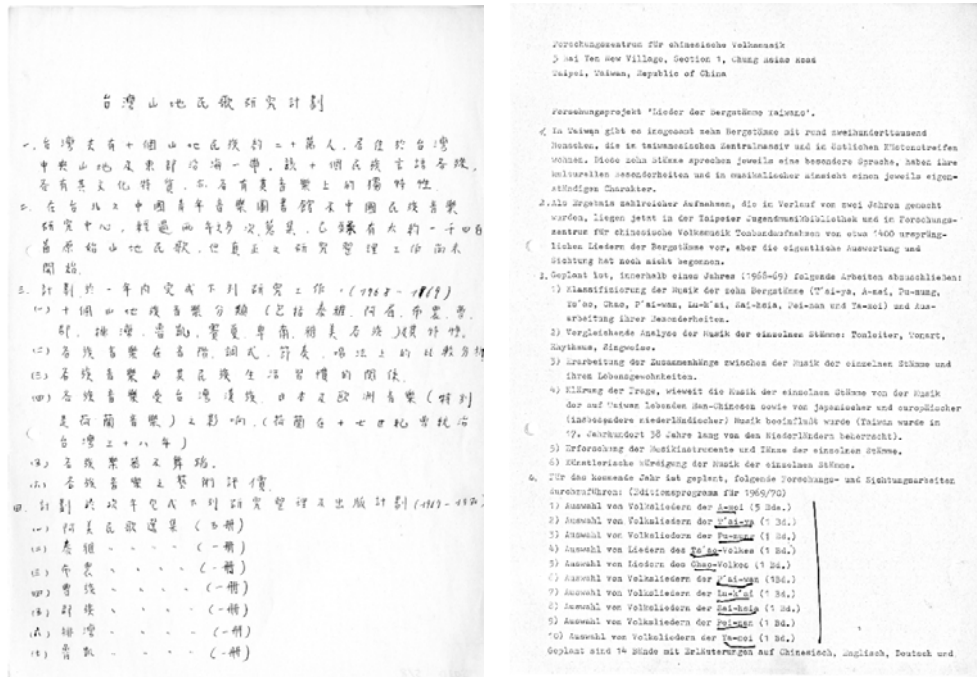 台灣山地民歌研究計劃
一、台灣共有十個山地民族約二十萬人，居住於台灣
中央山地及東部沿海一帶，該十個民族言語各殊，
各有其文化特質，亦各有其音樂上的獨特性。
二、在台北之中國青年音樂圖書館及中國民族音樂
研究中心，經過兩年多次蒐集，已錄有大約一千四百
首原始山地民歌，但真正之研究整理工作尚未
開始。
三、計劃於一年內完成下列研究工作。(1968-1969)
(一) 十個山地族音樂分類(包括泰雅、阿眉、布農、曹、
邵、排灣、魯凱、賽夏、卑南、雅美各族)與其特性。
(二) 各族音樂在音階、調式、節奏、唱法上的比較分析
(三) 各族音樂與其民族生活習慣的關係
(四) 各族音樂受台灣漢族、日本及歐洲音樂(特別
是荷蘭音樂)之影响。(荷蘭在十七世紀曾統治
台灣三十八年)
(五) 各族樂器及舞蹈。
(六) 各族音樂之藝術評價。
四、計劃於次年完成下列研究整理及出版計劃(1969-1970)
(一) 阿美民歌選集 (五冊)
(二) 泰雅 、、、、 (一冊)
(三) 布農 、、、、 (一冊)
(四) 曹族 、、、、 (一冊)
(五) 邵族 、、、、 (一冊)
(六) 排灣 、、、、 (一冊)
(七) 魯凱 、、、、 (一冊)
Forschungszentrum für chinesische Volksmusik
5 Hai Ten New Village, Section 1, Chung Hsiao Road
Taipei, Taiwan, Republic of China
Forschungsprojekt 'Lieder der Bergstämme Taiwans'.
1. In Taiwan gibt es insgesamt zehn Bergstämme mit rund zweihunderttausend
Menschen, die im taiwanesischen Zentralmassiv und im östlichen Küstenstreifen
wohnen. Diese zehn Stämme sprechen jeweils eine besondere Sprache, haben ihre
kulturellen Besonderheiten und in musikalischer Hinsicht einen jeweils eigen-
ständigen Charakter.
2. Als Ergebnis zahlreicher Aufnahmen, die im Verlauf von zwei Jahren gemacht
wurden, liegen jetzt in der Taipeier Jugendmusikbibliothek und im Forschungs-
zentrum für chinesische Volksmusik Tonbandaufnahmen von etwa 1400 ursprüng-
lichen Liedern der Bergstämme vor, aber die eigentliche Auswertung und
Sichtung hat noch nicht begonnen.
3. Geplant ist, innerhalb eines Jahres (1968-69) folgende Arbeiten abzuschließen:
1) Klassifizierung der Musik der zehn Bergstämme (T'ai-ya, A-mei, Pu-nung,
Ts'ao, Chao, P'ai-wan, Lu-k'ai, Sai-hsia, Pei-nan und Ya-mei) und Aus-
arbeitung ihrer Besonderheiten.
2) Vergleichende Analyse der Musik der einzelnen Stämme: Tonleiter, Tonart,
Rhythmus, Singweise.
3) Erarbeitung der Zusammenhänge zwischen der Musik der einzelnen Stämme und
ihren Lebensgewohnheiten.
4) Klärung der Frage, wieweit die Musik der einzelnen Stämme von der Musik
der auf Taiwan lebenden Han-Chinesen sowie von japanischer und europäischer
(insbesondere niederländischer) Musik beeinflußt wurde (Taiwan wurde im
17. Jahrhundert 38 Jahre lang von den Niederländern beherrscht).
5) Erforschung der Musikinstrumente und Tänze der einzelnen Stämme.
6) Künstlerische Würdigung der Musik der einzelnen Stämme.
4. Für das kommende Jahr ist geplant, folgende Forschungs- und Sichtungsarbeiten
durchzuführen: (Editionsprogramm für 1969/70)
1) Auswahl von Volksliedern der A-mei (5 Bde.)
2) Auswahl von Volksliedern der T'ai-ya (1 Bd.)
3) Auswahl von Volksliedern der Pu-nung (1 Bd.)
4) Auswahl von Liedern des Ts'ao-Volkes (1 Bd.)
5) Auswahl von Liedern des Chao-Volkes (1 Bd.)
6) Auswahl von Volksliedern der P'ai-wan (1Bd.)
7) Auswahl von Volksliedern der Lu-k'ai (1 Bd.)
8) Auswahl von Volksliedern der Sai-hsia (1 Bd.)
9) Auswahl von Volksliedern der Pei-nan (1 Bd.)
10) Auswahl von Volksliedern der Ya-mei (1 Bd.)
Geplant sind 14 Bände mit Erläuterungen auf Chinesisch, Englisch, Deutsch und